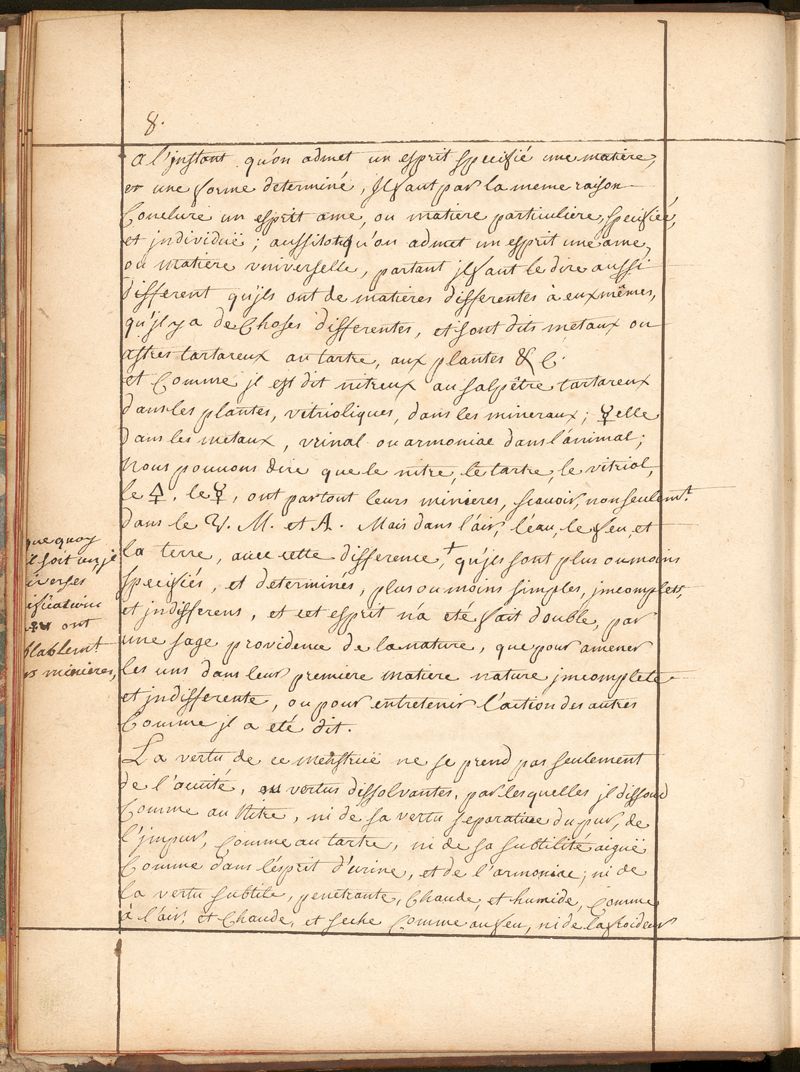 8.
a l'jnstant qu'on admet un esprit specifié une matiere,
et une forme determiné, jl faut par la meme raison
Conclure un esprit ame, ou matiere particuliere, specifieé,
et jndividuë; aussitot qu'on admet un esprit une ame,
ou matiere vniverselle, partant jl faut le dire aussi
different qu'jls ont de matieres differentes à eux mêmes,
qu'jl y a de Choses differentes, et sont dits metaux ou
astres tartareux au tartre, aux plantes & C.
et Comme jl est dit nitreux au salpêtre tartareux
dans les plantes, vitrioliques, dans les mineraux; ☿elle
dans les metaux, vrinal ou armoniac dans l'ánimal;
Nous pouvons dire que le nitre, le tartre, le vitriol,
le 🜍, le ☿, ont partout leurs minieres, scauoir, non seulemt.
dans le V. M. et A. Mais dans l'air, l'éau, le feu, et
la terre, auec cette difference,+ qu'jls sont plus ou moins
specifiés, et determinés, plus ou moins simples, jmcomplets,
et jndifferens, et cet esprit n'a eté fait double, par
une sage providence de la nature, que pour amener
les uns dans leur premiere matiere nature jmcomplete
et jndifferente, ou pour entretenir l'action des autres
Comme jl a eté dit.
La vertu de ce menstruë ne se prend pas seulement
de l'acuité, ou vertus dissolvantes, par lesquelles jl dissoud
Comme au Nitre, ni de sa vertu separatiue du pur, de
l'jmpur, Comme au tartre, ni de sa subtilité aiguë
Comme dans l'ésprit d'urine, et de l'armoniac; ni de
la vertu subtile, penetrante, Chaude, et humide, Comme
à l'air, et Chaude, et seche Comme au feu, ni de la froideur
que quoy
il soit
iverses
ification
ont
blablemt
rs minieres,